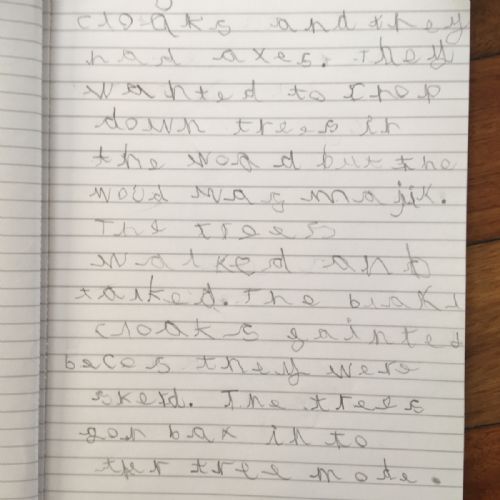 cloaks and they
had axes. They
wanted to chop
down trees in
the wood but the
wood was majik.
The trees
walked and
talked. The blak
cloaks gainted
becos they were
skerd. The trees
gon bax in to
ther tree mode.